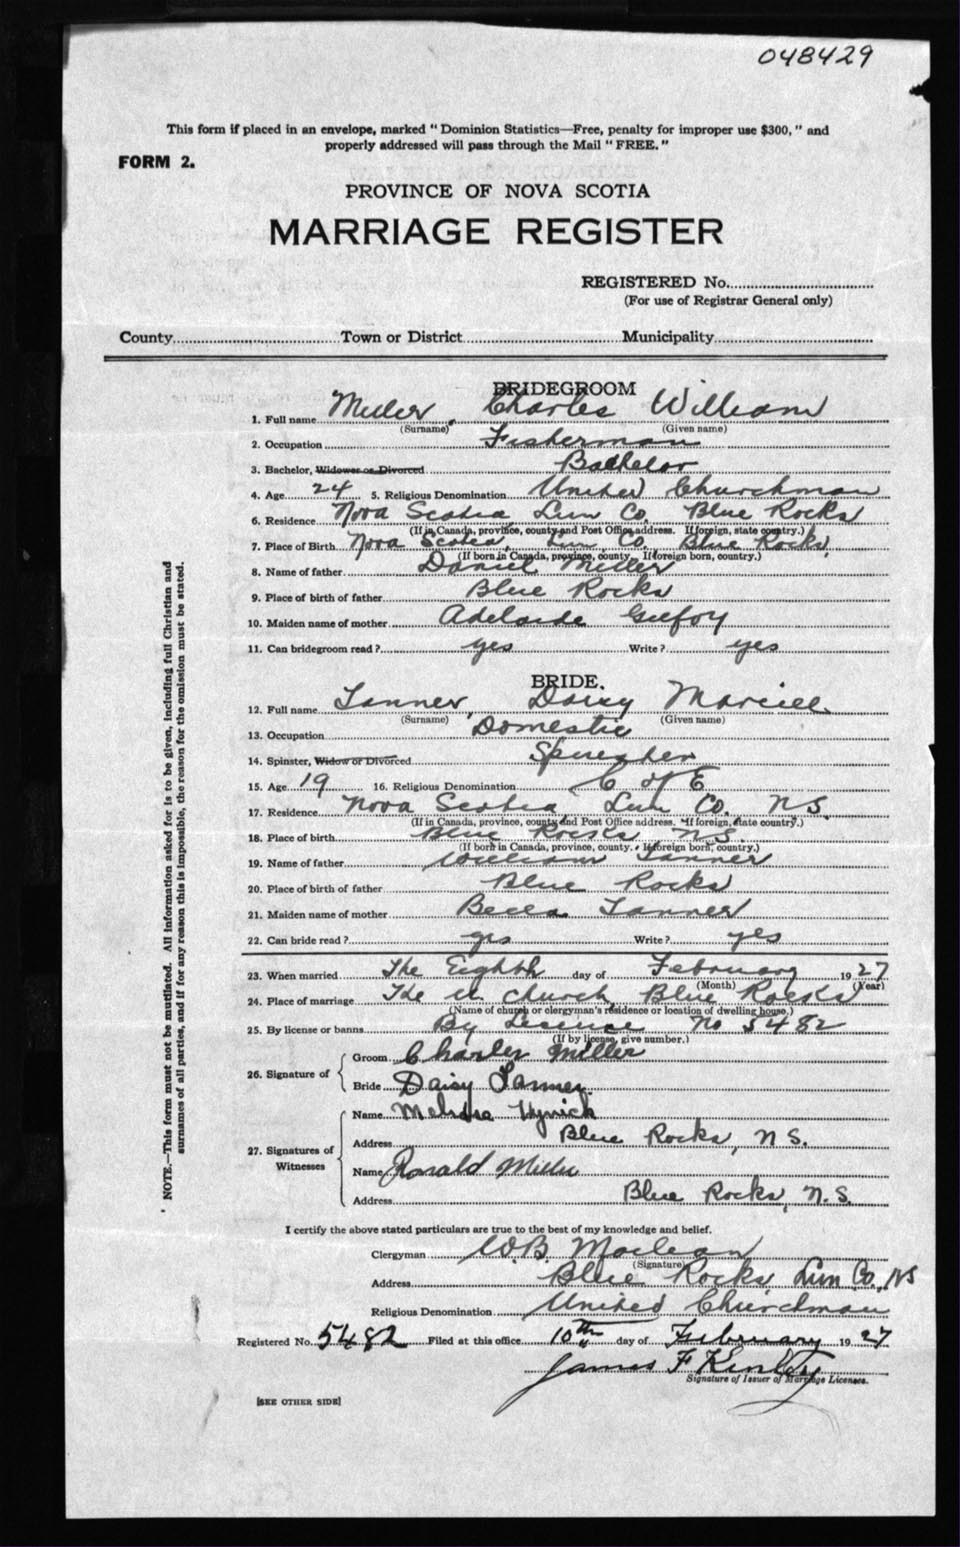 048429
This form if placed in an envelope, marked "Dominion Statistics—Free, penalty for improper use $300," and
properly addressed will pass through the Mail "FREE."
FORM 2.
PROVINCE OF NOVA SCOTIA
MARRIAGE REGISTER
REGISTERED No.
(For use of Registrar General only)
County Town or District Municipality
BRIDEGROOM
1. Full name Miller, Charles William
(Surname) (Given name)
2. Occupation Fisherman
3. Bachelor, Widower or Divorced Bachelor
4. Age 24 5. Religious Denomination United Churchman
6. Residence Nova Scotia Lun Co. Blue Rocks
(If in Canada, province, county and Post Office address. If foreign, state country.)
7. Place of Birth Nova Scotia, Lun Co. Blue Rocks,
(If born in Canada, province, county. If foreign born, country.)
8. Name of father Daniel Miller
9. Place of birth of father Blue Rocks
10. Maiden name of mother Adelaide
11. Can bridegroom read? yes Write? yes
BRIDE.
12. Full name Tanner, Daisy
(Surname) (Given name)
13. Occupation Domestic
14. Spinster, Widow or Divorced Spinster
15. Age 19 16. Religious Denomination C of E
17. Residence Nova Scotia Lun Co. N S.
(If in Canada, province, county and Post Office address. If foreign, state country.)
18. Place of birth Blue Rocks N S.
(If born in Canada, province, county. If foreign born, country.)
19. Name of father William Tanner
20. Place of birth of father Blue Rocks
21. Maiden name of mother Becca Tanner
22. Can bride read? yes Write? yes
23. When married The Eighth day of February 1927
(Month) (Year)
24. Place of marriage The U. Church, Blue Rocks
(Name of church or clergyman's residence or location of dwelling house.)
25. By license or banns By Lisence No 5482
(If by license, give number.)
26. Signature of
Groom Charles Miller
Bride Daisy Tanner
27. Signatures of Witnesses
Name Hynick
Address Blue Rocks, N S.
Name Ronald Miller
Address Blue Rocks, N. S.
I certify the above stated particulars are true to the best of my knowledge and belief.
Clergyman W.B. Maclean
(Signature)
Address Blue Rocks Lun Co. NS
Religious Denomination United Churchman
Registered No. 5482 Filed at this office 10th day of February 1927
James F Kinley
Signature of Issuer of Marriage Licenses.
[SEE OTHER SIDE]
NOTE.—This form must not be mutilated. All information asked for is to be given, including full Christian and
surnames of all parties, and if for any reason this is impossible, the reason for the omission must be stated.